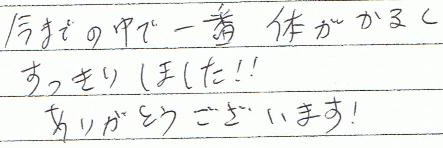 今までの中で一番 体がかるく
すっきりしました!!
ありがとうございます!